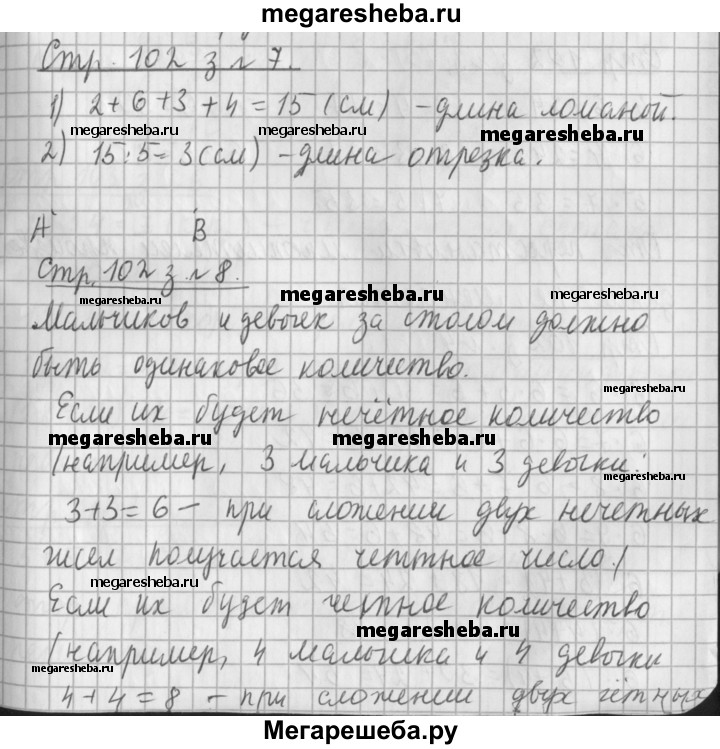 megaresheba.ru
Стр. 102 з № 7.
1) 2+6+3+4=15 (см) - длина ломаной.
megaresheba.ru megaresheba.ru megaresheba.ru
2) 15:5=3(см) - длина отрезка.
А В
Стр. 102 з. № 8.
megaresheba.ru megaresheba.ru megaresheba.ru
Мальчиков и девочек за столом должно
быть одинаковое количество.
megaresheba.ru
Если их будет нечётное количество
megaresheba.ru megaresheba.ru
/например, 3 мальчика и 3 девочки:
megaresheba.ru
3+3=6 - при сложении двух нечетных
чисел получается четтное число./
megaresheba.ru
Если их будет четное количество
megaresheba.ru
/например, 4 мальчика и 4 девочки
megaresheba.ru megaresheba.ru
4+4=8 - при сложении двух чётных
Мегарешеба.ру